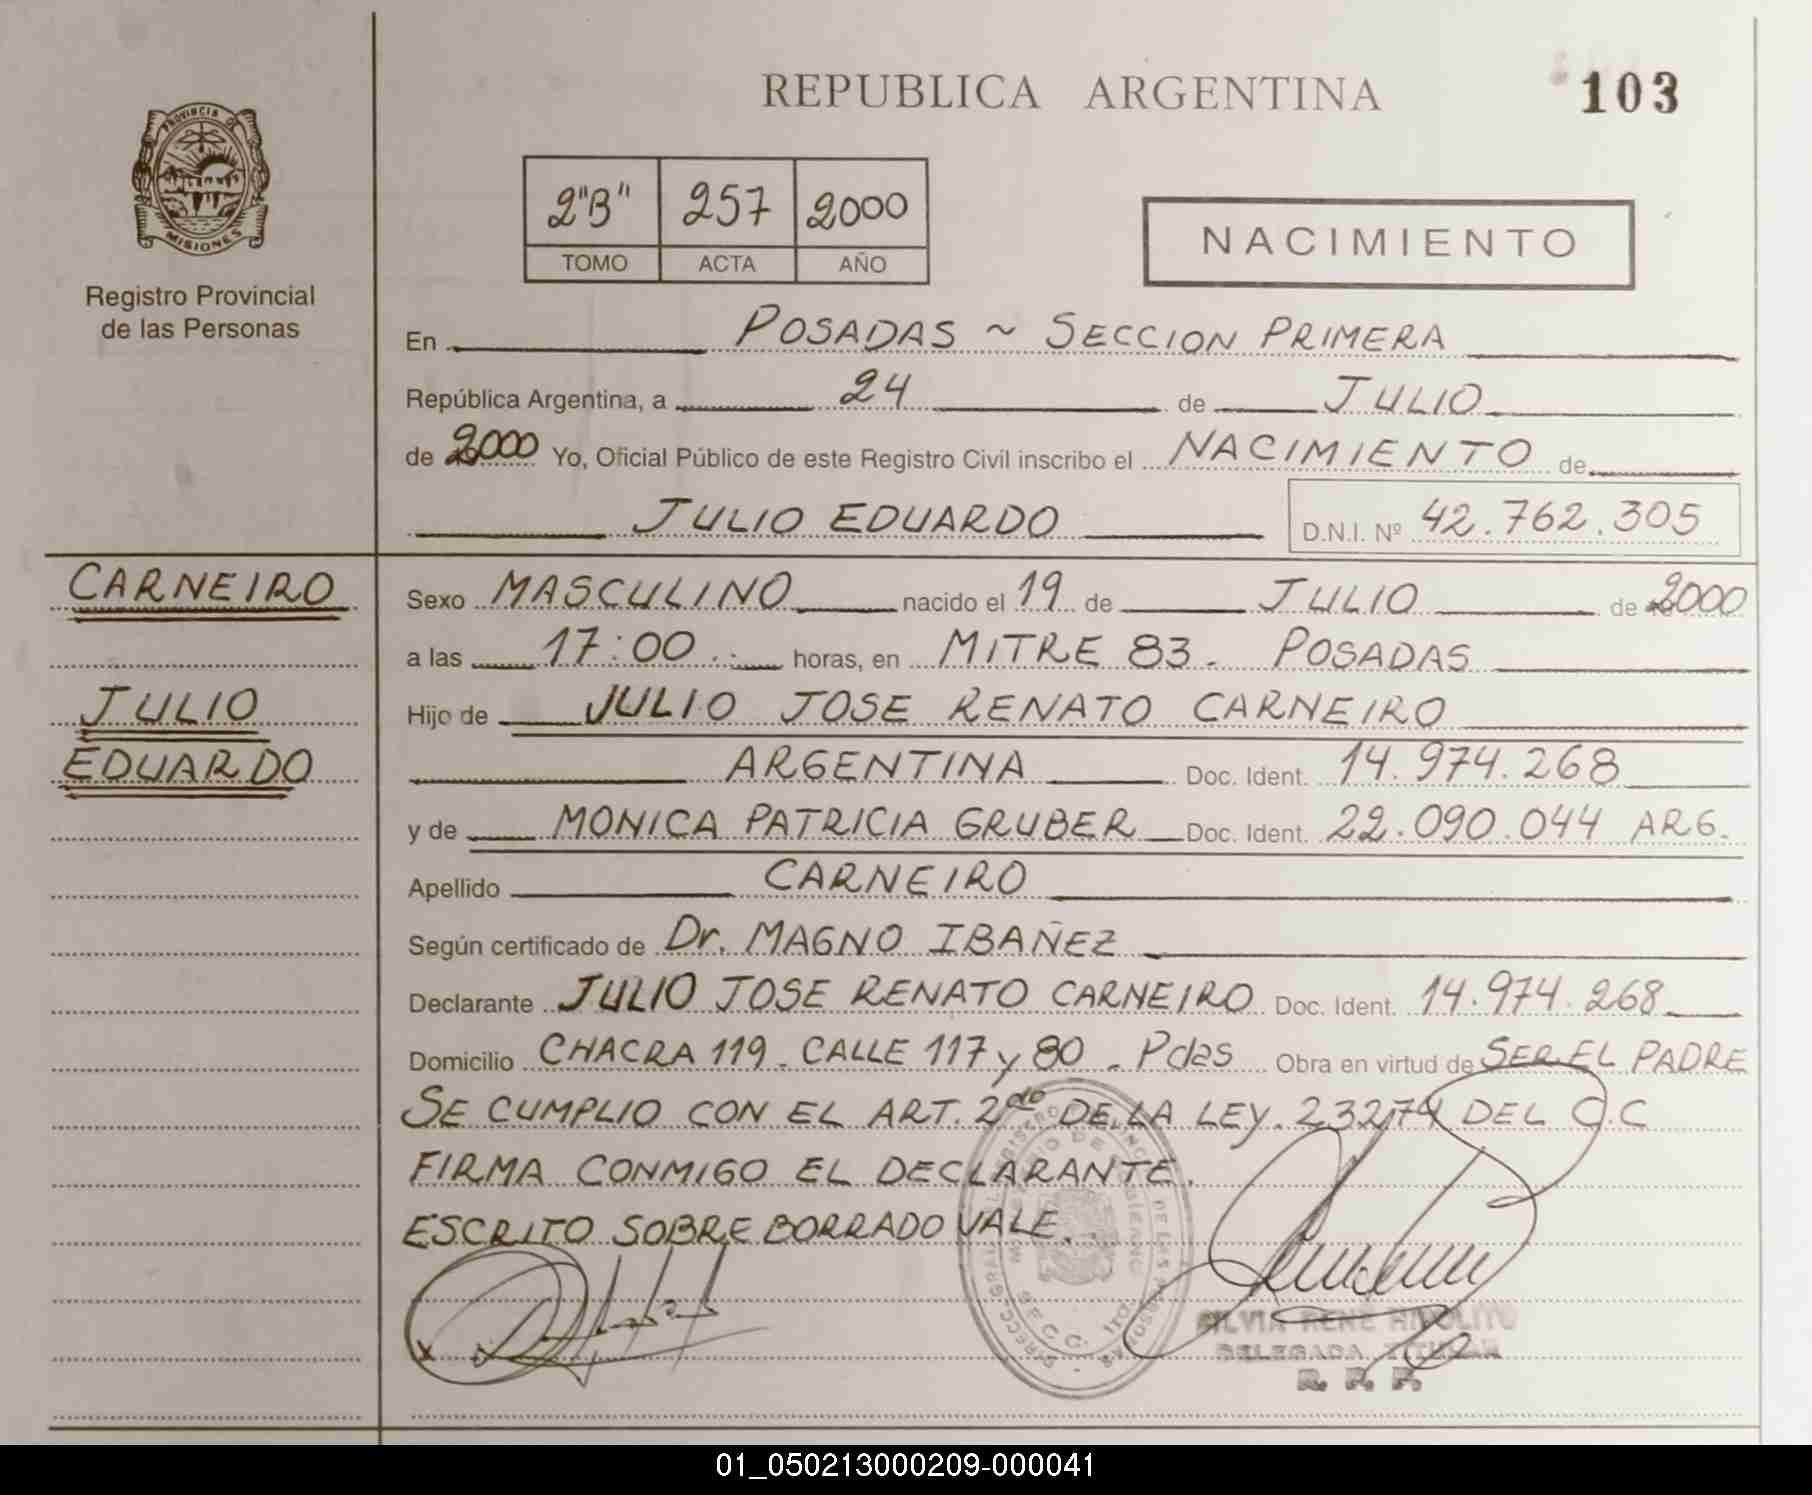 REPUBLICA ARGENTINA
103
PROVINCIA DE
MISIONES
Registro Provincial
de las Personas
2"B" 257 2000
TOMO ACTA AÑO
NACIMIENTO
En POSADAS ~ SECCION PRIMERA
República Argentina, a 24 de JULIO
de 2000 Yo, Oficial Público de este Registro Civil inscribo el NACIMIENTO de
JULIO EDUARDO D.N.I. Nº 42.762.305
CARNEIRO
JULIO
EDUARDO
Sexo MASCULINO nacido el 19 de JULIO de 2000
a las 17:00 horas, en MITRE 83. POSADAS
Hijo de JULIO JOSE RENATO CARNEIRO
ARGENTINA Doc. Ident. 14.974.268
y de MONICA PATRICIA GRUBER Doc. Ident. 22.090.044 ARG.
Apellido CARNEIRO
Según certificado de Dr. MAGNO IBAÑEZ
Declarante JULIO JOSE RENATO CARNEIRO Doc. Ident. 14.974.268
Domicilio CHACRA 119. CALLE 117 y 80 - Pdas Obra en virtud de SER EL PADRE
SE CUMPLIO CON EL ART. 2do DE LA LEY. 23274 DEL C.C
FIRMA CONMIGO EL DECLARANTE.
ESCRITO SOBRE BORRADO VALE.
SILVIA RENÉ HIPOLITO
DELEGADA TITULAR
R. P. P.
01_050213000209-000041